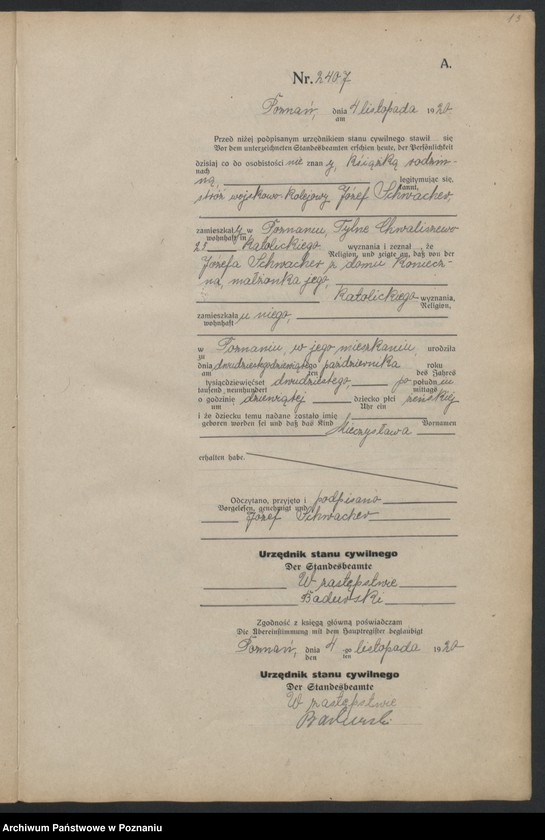 13
A.
Nr. 2407
Poznań, dnia 4 listopada 1920
am
Przed niżej podpisanym urzędnikiem stanu cywilnego stawił się
Vor dem unterzeichneten Standesbeamten erschien heute, der Persönlichkeit
dzisiaj co do osobistości nie znany, książką rodzin-
nach
ną legitymując się,
kannt,
stróż wojskowo-kolejowy Józef Schwacher,
zamieszkały w Poznaniu, Tylne Chwaliszewo
wohnhaft in
28 katolickiego wyznania i zeznał że
Religion, und zeigte an, daß von der
Józefa Schwacher z domu Koniecz-
na, małżonka jego,
katolickiego wyznania,
Religion,
zamieszkała u niego,
wohnhaft
w Poznaniu, w jego mieszkaniu, urodziła
zu
dnia dwudziestego dziewiątego października roku
am ten des Jahres
tysiącdziewięćset dwudziestego, po południu
tausend neunhundert mittags
o godzinie dziewiątej dziecko płci żeńskiej
um Uhr ein
i że dziecku temu nadane zostało imię
geboren worden sei und daß das Kind Vornamen
Mieczysława
erhalten habe.
Odczytano, przyjęto i podpisano
Vorgelesen, genehmigt und
Józef Schwacher
Urzędnik stanu cywilnego
Der Standesbeamte
W zastępstwie
Badurski
Zgodność z księgą główną poświadczam
Die Übereinstimmung mit dem Hauptregister beglaubigt
Poznań, dnia 4 -go listopada 1920
den ten
Urzędnik stanu cywilnego
Der Standesbeamte
W zastępstwie
Badurski
Archiwum Państwowe w Poznaniu